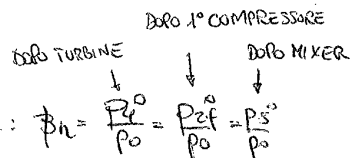 DOPO 1° COMPRESSORE
DOPO TURBINE
DOPO MIXER
: βn = P4°/P0 = P2f°/P0 = P5°/P0